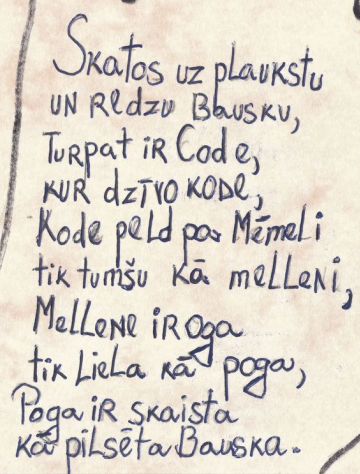 Skatos uz plaukstu
un redzu Bausku,
Turpat ir Code,
kur dzīvo kode,
Kode peld pa Mēmeli
tik tumšu kā melleni,
Mellene ir oga
tik liela kā poga,
Poga ir skaista
kā pilsēta Bauska.